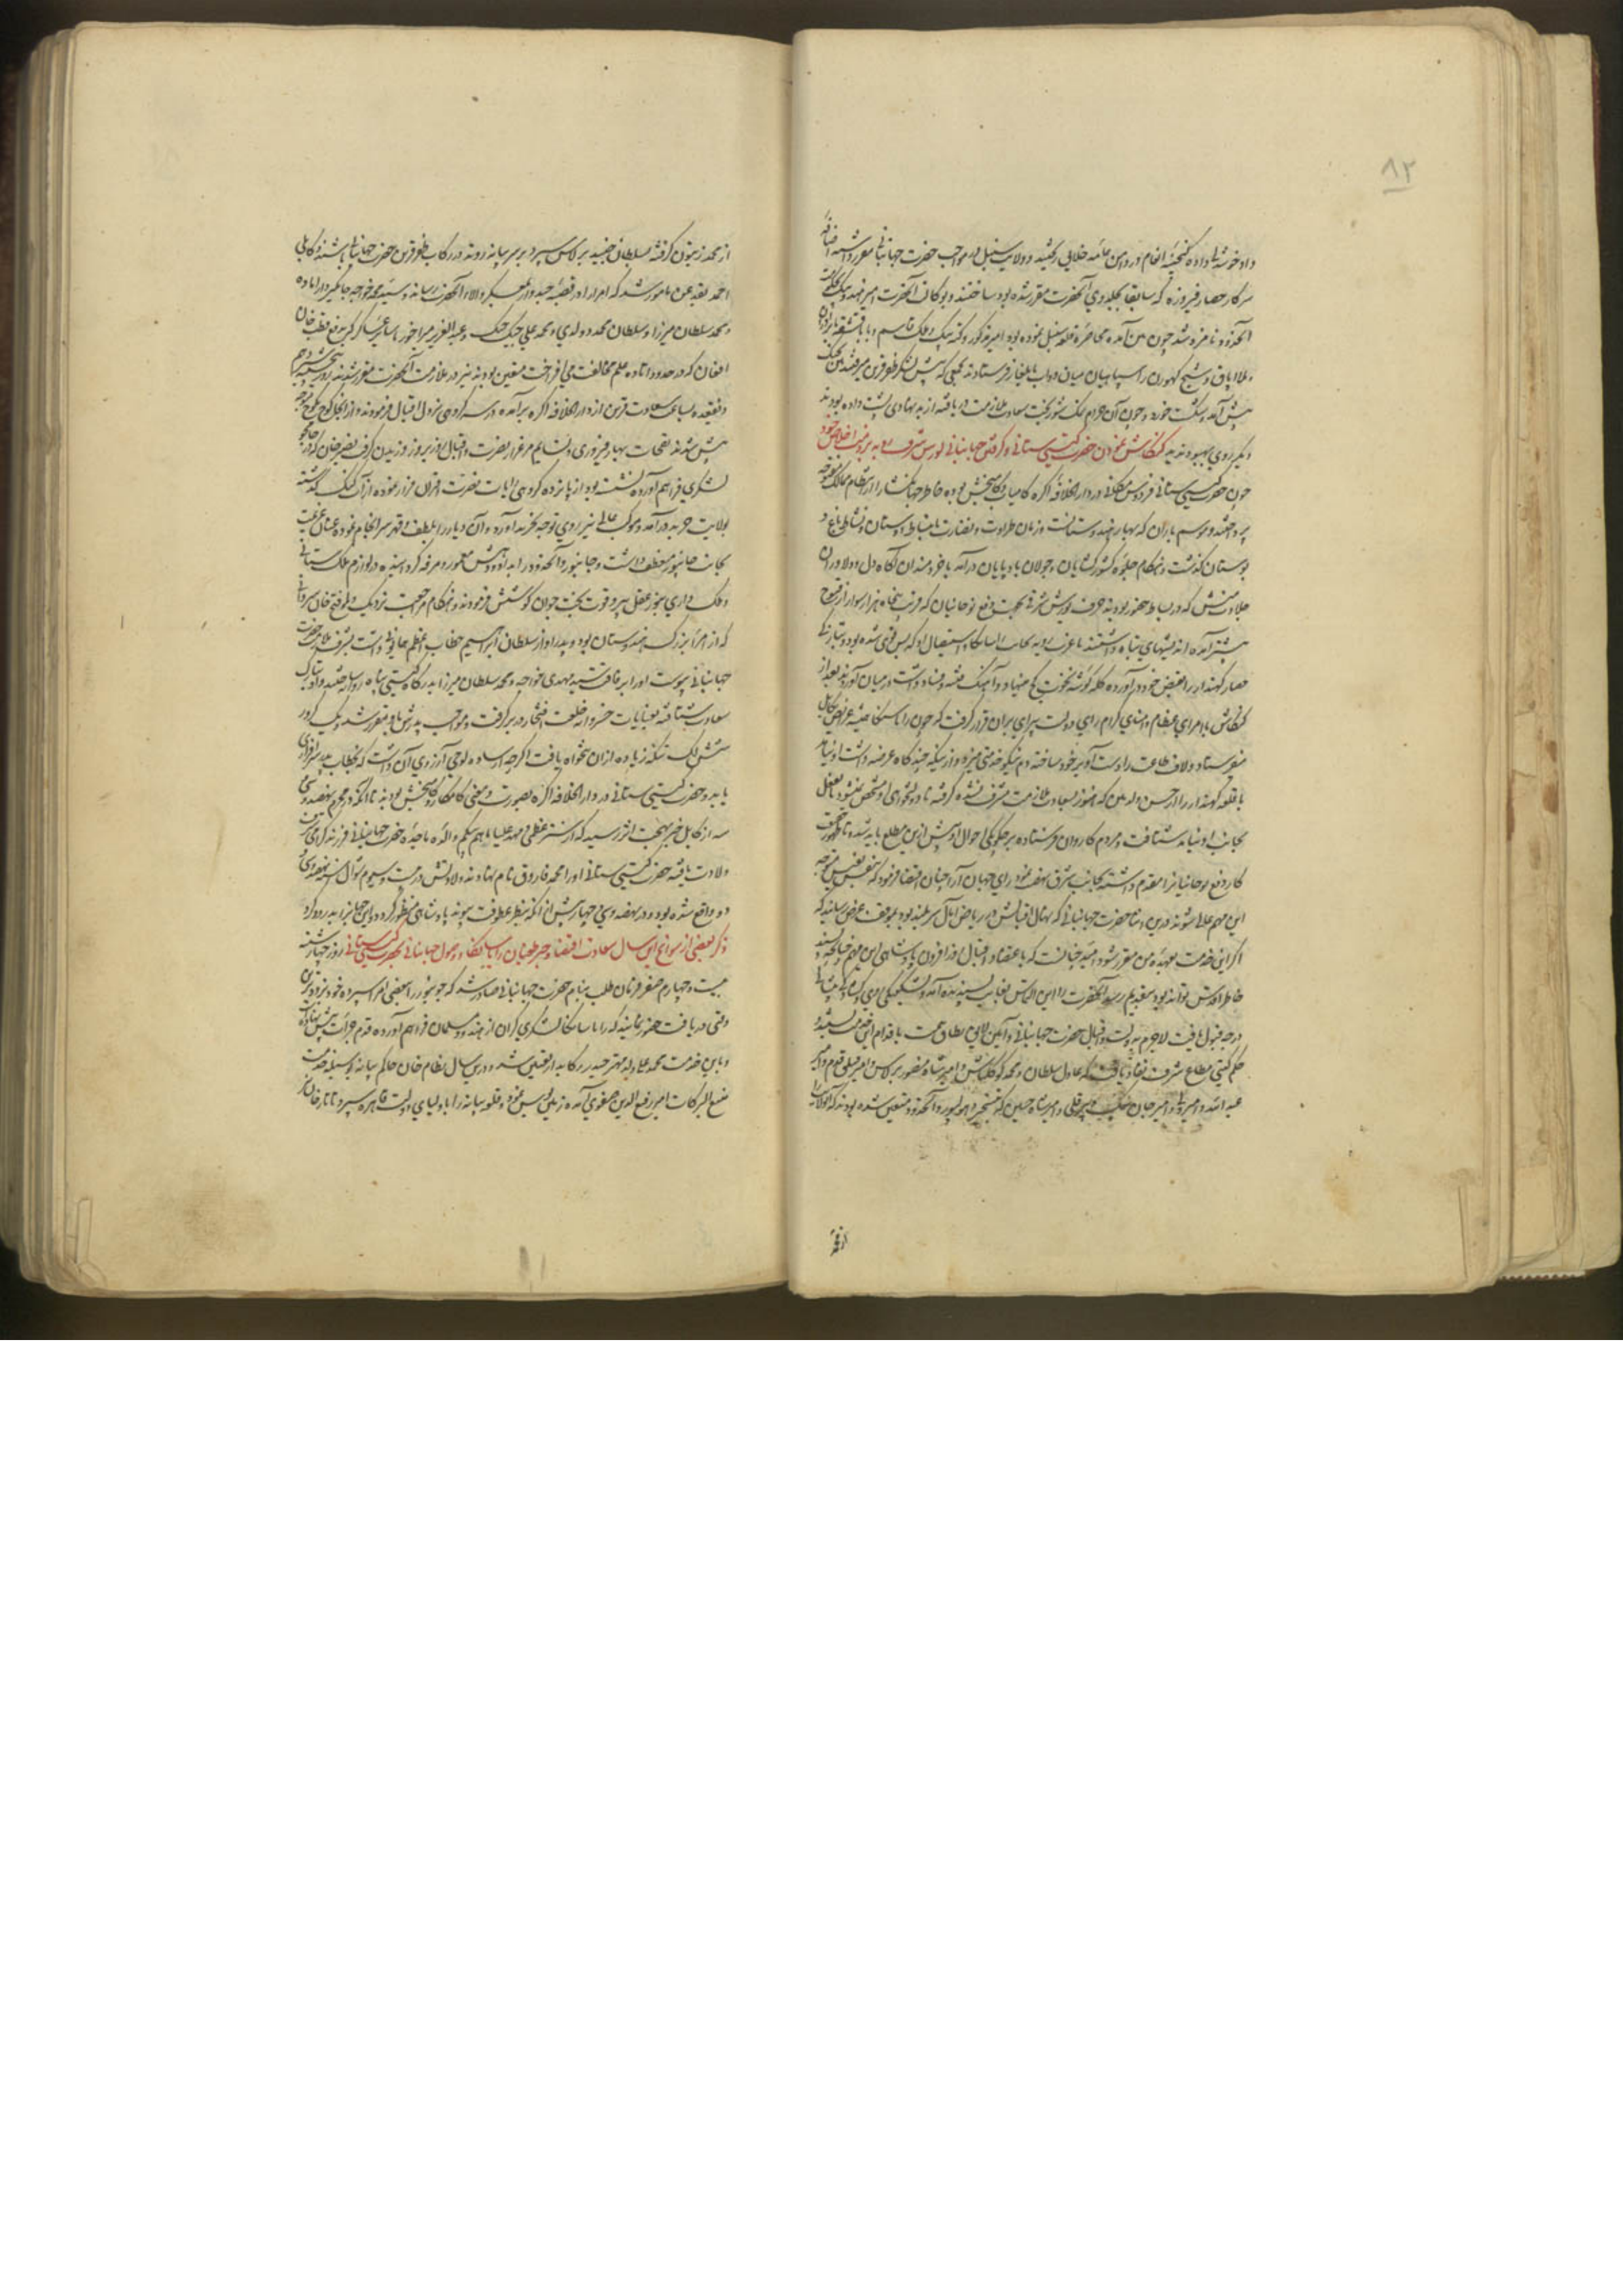 ٨٢
داد خوشدلی داده گنجینهٔ انعام در دامن عامهٔ خلایق ریختند و ولایت سنبل در مواجب حضرت جهانبانی مقرر داشته اضافهٔ
سرکار حصار فیروزه که سابقا بجلدوی آنحضرت مقرر شده بود ساختند و بوکالت آنحضرت امیر هندو بیک
آنحدود نامزد شد چون بین آمده محاصرهٔ قلعه سنبل نموده بود امیر مذکور و کته بیک و ملک قاسم و بابا قشقه با برادران
و ملا اپاق و شیخ گهورن را با سپاهیان میان دواب بایلغار فرستادند جمعی که پیش لشکر ظفر قرین میرفتند بین جنگ
پیش آمد و شکست خورد و چون آن حرام نمک شور بخت سعادت ملازمت دریافته از بد نهادی پشت داده بود
دیگر روی بهبود ندید کنکاش نمودن حضرت گیتی ستانی و گرفتن جهانبانی یورش شرق رویه بر ذمت اخلاص خود
چون حضرت گیتی ستانی فردوس مکانی در دارالخلافه آگره کامیاب و کامبخش بوده خاطر جهانگشا را از انتظام ممالک
پرداختند و موسم باران که بهار هندوستانست و زمان طراوت و نضارت و انبساط دوستان و نشاط باغ و
بوستان گذشت و هنگام جلوهٔ کشور گشایان و جولان باد پایان درآمد با خردمندان آگاه دل و دلاوران
جلادت منش که در بساط حضور بودند حرف یورش شرق بجهت دفع نوحانیان که قریب پنجاه هزار سوار از قنوج
پیشتر آمده اندیشهای تباه داشتند یا غرب رویه بجانب رانا سانکا و استیصال او که بس قوی شده بود و بتازگی
حصار کهندار را بقبض خود درآورده کله گوشهٔ نخوت کج مینهاد و آهنگ فتنه و فساد داشت در میان آوردند بعد از
کنکاش با امرای عظام و امنای کرام رای دولت پیرای بران قرار گرفت که چون رانا سانکا همیشه عرایض بکابل
میفرستاد و لاف طاعت را دست آویز خود ساخته دم نیکو خدمتی میزد
با قلعه کهندار را از حسن ولد مکن که هنوز بسعادت ملازمت مشرف نشده گرفته نادولتخواهی او مشخص نمیشود بالفعل
بجانب او نباید شتافت و مردم کاردان فرستاده بر چگونگی احوال او بیش ازین مطلع باید شد
کار دفع نوحانیان را مقدم داشته بجانب شرق نهضت نمود رای جهان آرا چنان اقتضا فرمود که بنفس نفیس متوجه
این مهم عالی شوند درین اثنا حضرت جهانبانی که نهال اقبالش در ریاض آمال سر بلند بود بموقف عرض رسانید که
اگر این خدمت بعهدهٔ من مقرر شود امید چنانست که باعتضاد اقبال روز افزون پادشاهی این مهم
خاطر اقدس تواند بود بتقدیم رسد آنحضرت را این التماس بغایت پسندیده آمد و بشکفتگی روی و گشادگی پیشانی
درجهٔ قبول یافت لاجرم بدولت و اقبال حضرت جهانبانی آیین لایق نطاق همت باقدام این خدمت بستند و
حکم گیتی مطاع شرف نفاذ یافت که عادل سلطان و محمد کوکلتاش و امیر شاه منصور برلاس و امیر قتلق قدم و امیر
عبد الله و امیر ولی و امیر جان بیک و پیر قلی و امیر شاه حسین که بتسخیر دهولپور و آنحدود متعین شده بودند
از محمد زیتون گرفته بسلطان جنید برلاس سپرد بر سر بیانه روند در رکاب ظفر قرین حضرت جهانبانی باشند و کابلی
احمد بقدغن مامور شد که امرا را در قصبهٔ چندوار بعسکر والای آنحضرت رساند و سید مهدی خواجه جاگیردار اتاوه
و محمد سلطان میرزا و سلطان محمد دولدی و محمد علی جنگ جنگ و عبد العزیز میراخور با سایر عساکر که بدفع قطب خان
افغان که در حدود اتاوه علم مخالفت می افراخت متعین بودند نیز در ملازمت آنحضرت مقرر شدند
ذیقعده بساعت سعادت قرین از دارالخلافه آگره برآمده در سه کروهی نزول اقبال فرمودند و از انجا کوچ بکوچ
پیش شدند نفحات بهار فیروزی و نسایم مرغزار نصرت و اقبال روز بروز وزیدن گرفت نصیر خان که در جاجمو
لشکری فراهم آورده نشسته بود از پانزده کروهی رایات نصرت اقتران فرار نموده از آب گنگ گذشته
بولایت خرید درآمد و موکب عالی نیز روی توجه بخرید آورد و آن دیار را بلطف و قهر سرانجام نموده عنان عزیمت
بجانب جانپور منعطف داشت و جانپور و آنحدود را بداد و دهش معمور و مرفه گردانیده در لوازم ملک ستانی
و ملک داری بتجویز عقل پیر و قوت بخت جوان کوشش فرمودند و هنگام مراجعت نزدیک دلمو فتح خان سروانی
که از امرای بزرگ هندوستان بود و پدر او از سلطان ابراهیم خطاب اعظم همایونی داشت بشرف ملازمت حضرت
جهانبانی پیوست او را برفاقت سید مهدی خواجه و محمد سلطان میرزا بدرگاه گیتی پناه روانه ساختند و او بتارک
سعادت شتافته بعنایات خسروانه خلعت افتخار در بر گرفت و مواجب پدرش باو مقرر شد و یک کرور
شش لک تنکه زیاده ازان تنخواه یافت اگرچه از ساده لوحی آرزوی آن داشت که بخطاب پدر سرافرازی
یابد و حضرت گیتی ستانی در دارالخلافه آگره بصورت و معنی کامکار و کامبخش بودند تا آنکه در محرم نهصد و سی
سه از کابل خبر بهجت اثر رسید که از ستر عظمی و مهد علیا ماهم بیگم والدهٔ ماجدهٔ حضرت جهانبانی فرزند گرامی
ولادت یافته حضرت گیتی ستانی او را محمد فاروق نام نهادند ولادتش در بیست و سیوم شوال سنه نهصد و سی
دو واقع شده بود و در نهصد و سی و چهار پیش از آنکه بنظر عطوفت پیوند پادشاهی منظور گردد این جهان را پدرود کرد
ذکر بعضی از سوانح این سال سعادت اقتضا و خبر طغیان رانا سانکا و وصول جهانبانی بحضرت گیتی ستانی روز چهارشنبه
بیست و چهارم صفر فرمان طلب بنام حضرت جهانبانی صادر شد که جونپور را ببعضی امرا سپرده خود بزودترین
وقتی دریافت حضور نمایند که رانا سانکا لشکری گران از هندو و مسلمان فراهم آورده قدم جرأت پیش نهاده
و باین خدمت محمد علی ولد مهتر حیدر رکابدار تعیین شد و درین سال نظام خان حاکم بیانه بوسیلهٔ خدمت
منبع البرکات امیر رفیع الدین صفوی آمده زمین بوس نمود و قلعه بیانه را باولیای دولت قاهره سپرد و تاتار خان